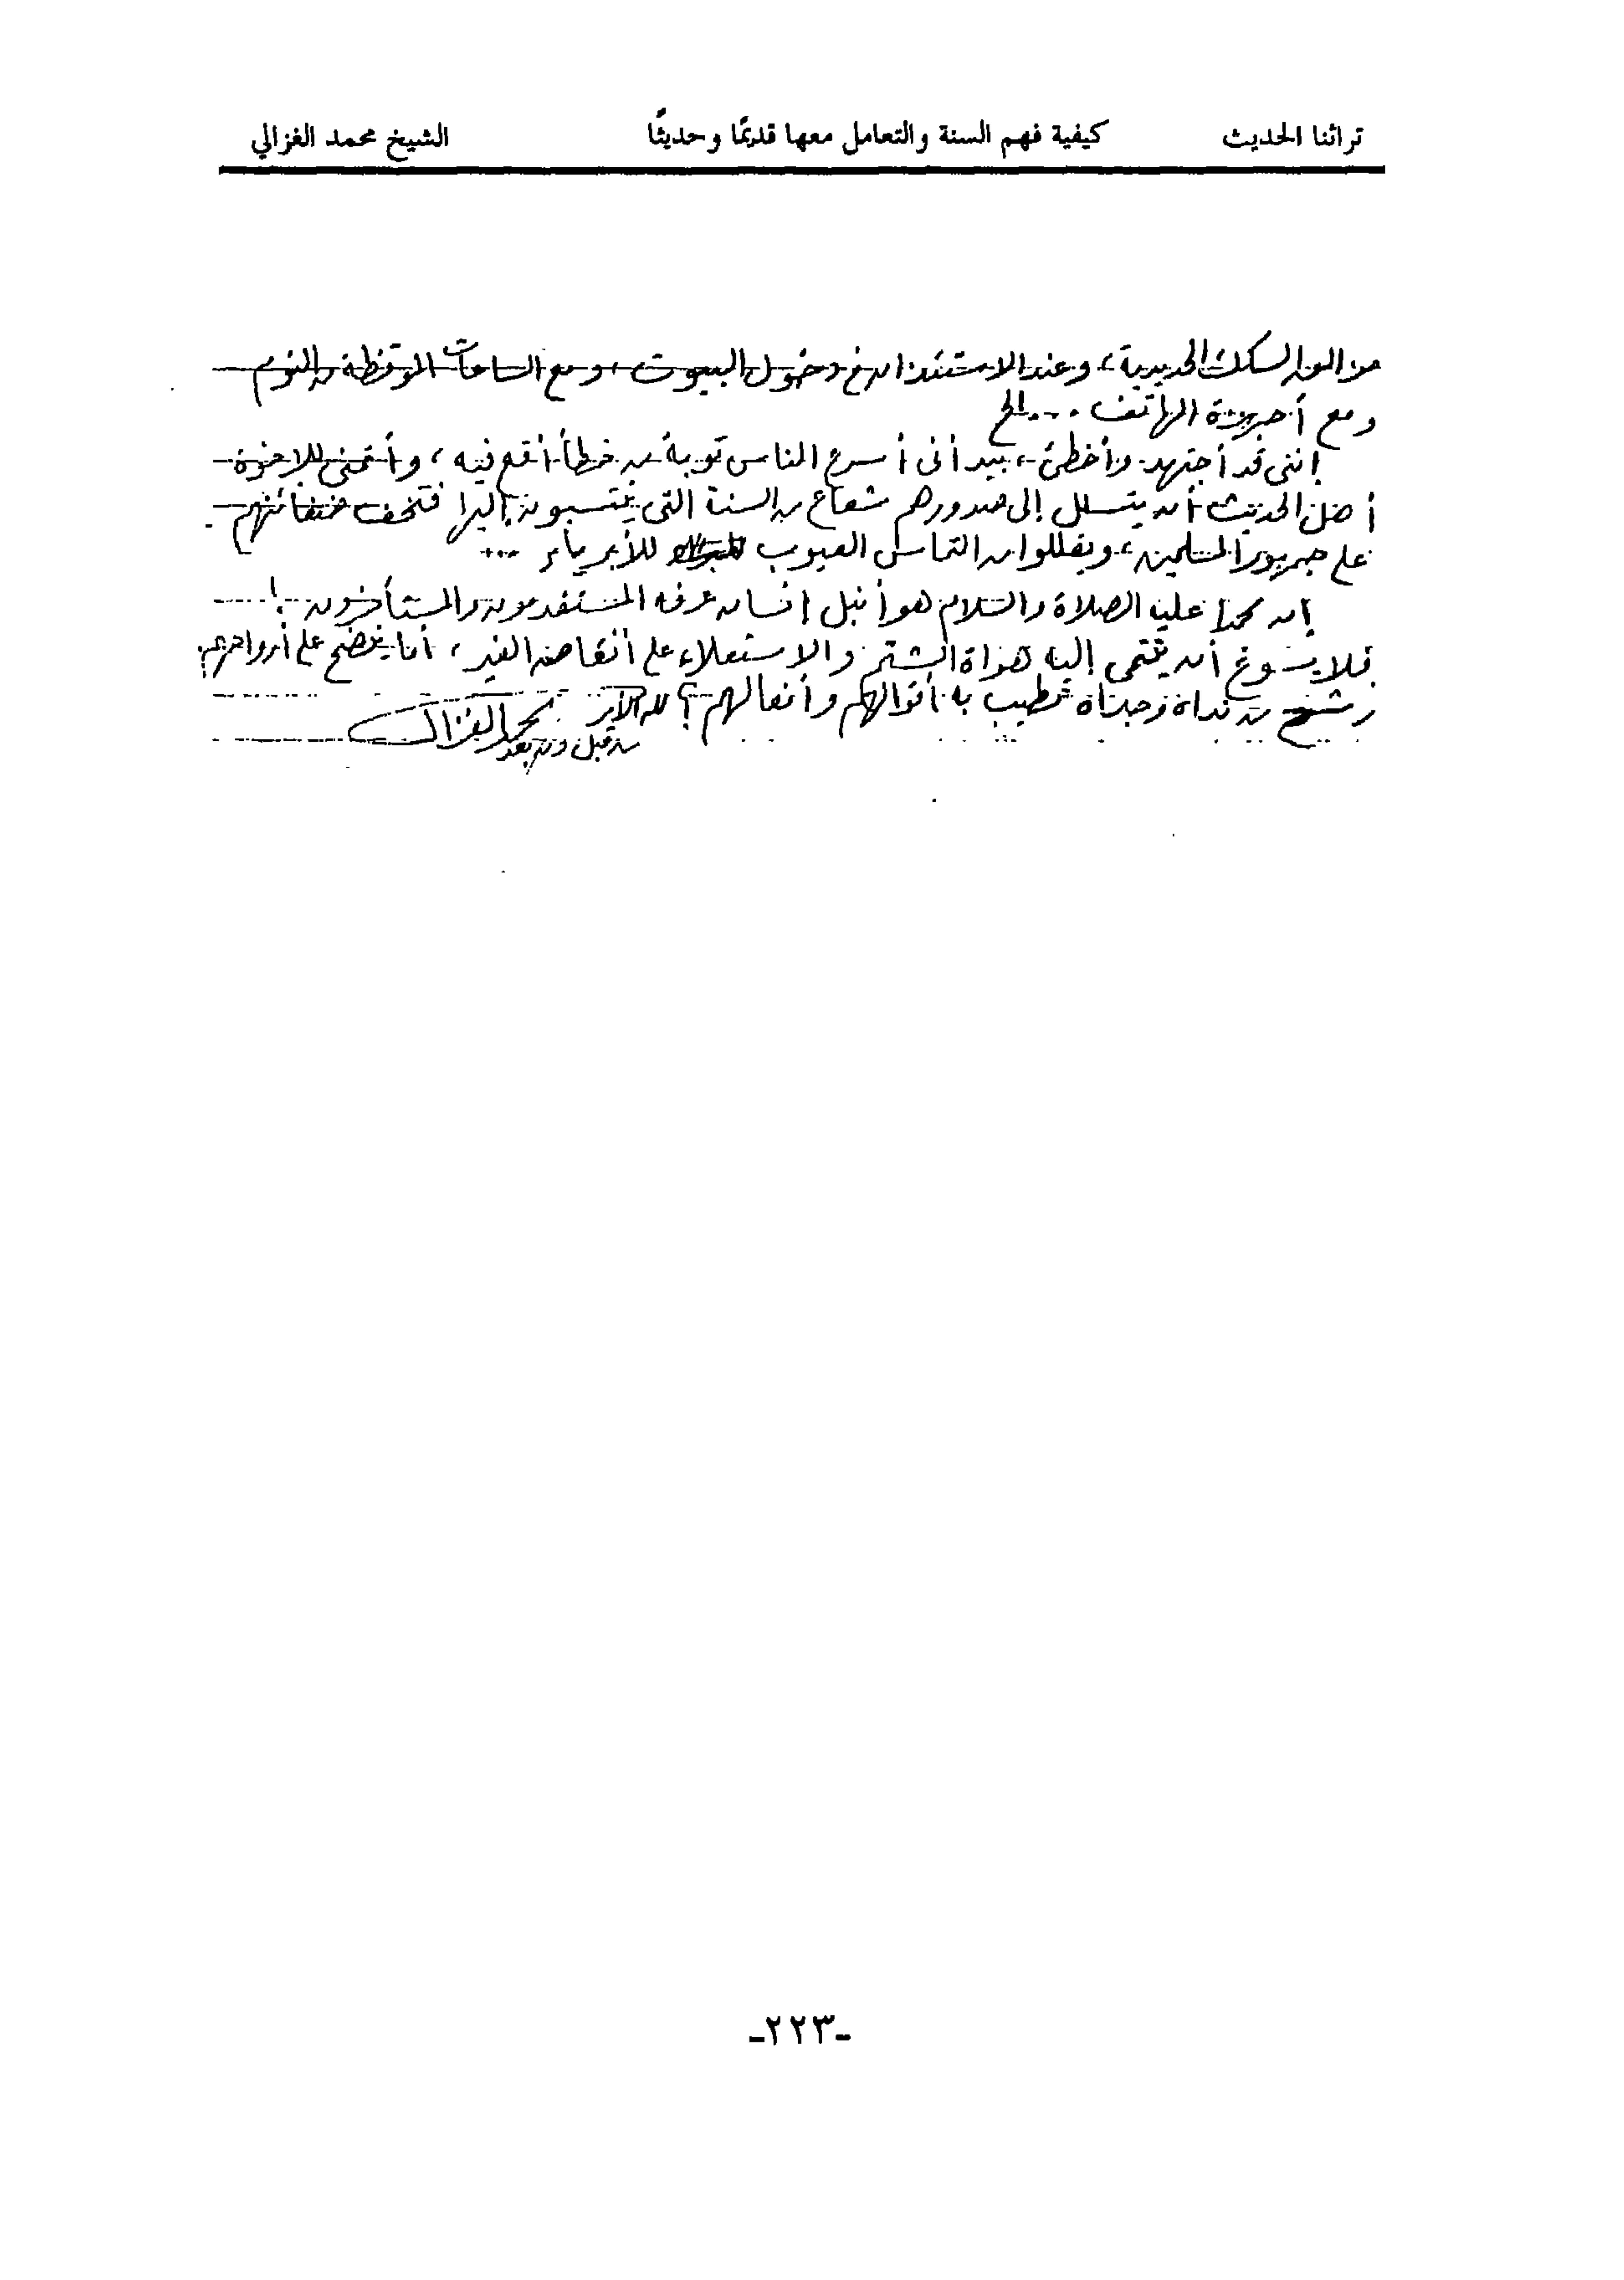 تراثنا الحديث كيفية فهم السنة والتعامل معها قديمًا وحديثًا الشيخ محمد الغزالي
السكك الحديدية، وعند الاستئذان فى دخول البيوت، ومع الساعات الموقظة من النوم
ومع أجهزة الهاتف ... الخ
إننى قد أجتهد وأخطئ، بيد أنى أسرع الناس توبة من خطأ أقع فيه، وأتمنى للإخوة
أهل الحديث أن يتسلل إلى صدورهم شعاع من السنة التى ينتسبون إليها فتخف ضغائنهم
على جمهور المسلمين، ويقللوا من التماس العيوب للأبرياء ...
إن محمدا عليه الصلاة والسلام هو أنبل إنسان عرفه المستقدمون والمستأخرون !
فلا يسوغ أن ينتمى إليه هواة الشتم والاستعلاء على أنقاض الغير، أما ينضح على أرواحهم
رشح من نداه وجداه تطيب به أقوالهم وأفعالهم؟ لله الأمر
من قبل ومن بعد محمد الغزالى
-٢٢٣-